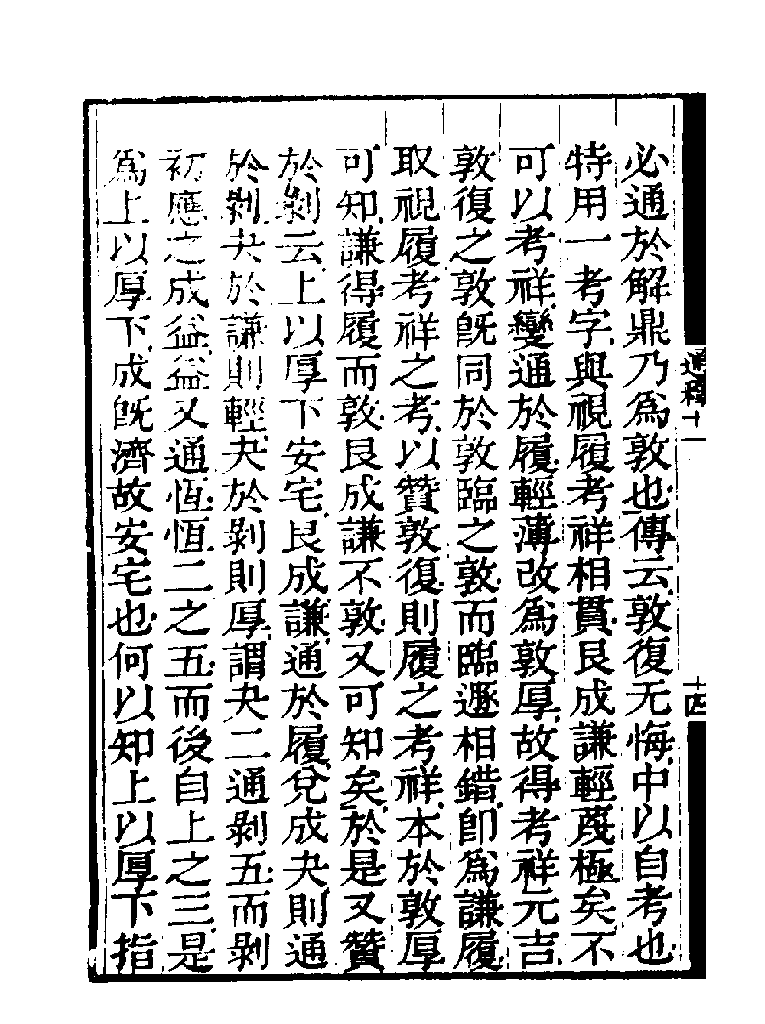 必通於解鼎乃爲敦也傳云敦復无悔中以自考也
特用一考字與視履考祥相貫艮成謙輕蔑極矣不
可以考祥變通於履輕薄改爲敦厚故得考祥元吉
敦復之敦旣同於敦臨之敦而臨遯相錯卽爲謙履
取視履考祥之考以贊敦復則履之考祥本於敦厚
可知謙得履而敦艮成謙不敦又可知矣於是又贊
於剝云上以厚下安宅艮成謙通於履兌成夬則通
於剝夬於謙則輕夬於剝則厚謂夬二通剝五而剝
初應之成益益又通恆恆二之五而後自上之三是
爲上以厚下成旣濟故安宅也何以知上以厚下指
通釋十一
十四